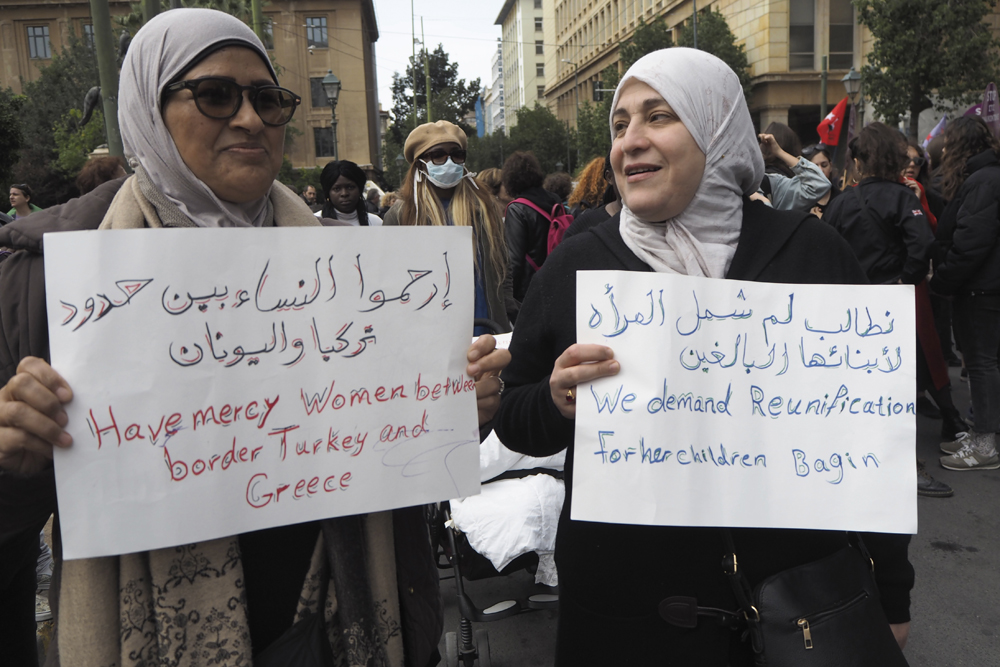 إرحموا النساء بين حدود
تركيا واليونان
Have mercy Women between
border Turkey and
Greece
نطالب لم شمل المرأه
لأبنائها البالغين
We demand Reunification
For her children Bagin